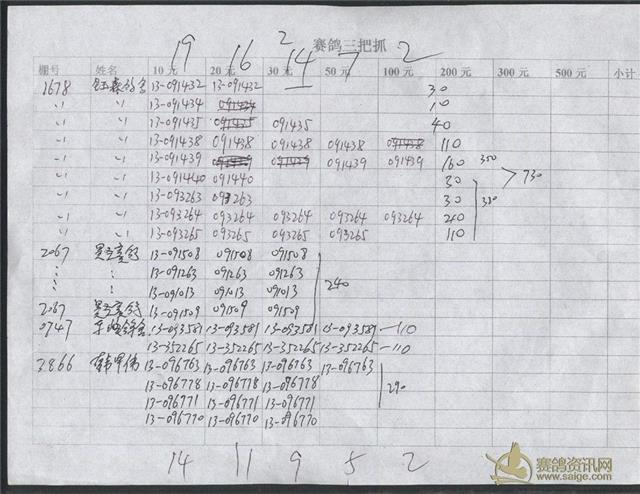 19 16 2 14 7 2
赛鸽三把抓
棚号 姓名 10元 20元 30元 50元 100元 200元 300元 500元 小计
1678 13-091432 13-091432 30
〃 〃 13-091434 10
〃 〃 13-091435 091435 40
〃 〃 13-091438 091438 091438 091438 110
〃 〃 13-091439 091439 091439 160 350
〃 〃 13-091440 091440 30 730
〃 〃 13-093263 093263 30 380
〃 〃 13-093264 093264 093264 093264 093264
〃 〃 13-093265 093265 093265 093265 110
2067 13-091508 091508 091508
13-091263 091263 091263
13-091013 091013 091013 240
2067 13-091509 091509 091509
0747 13-093581 13-093581 13-093581 13-093581 — 110
13-352265 13-352265 13-352265 13-352265 — 110
2866 13-096763 13-096763 13-096763 13-096763
13-096778 13-096778 13-096778 290
13-096771 13-096771 13-096771
13-096770 13-096770 13-096770
14 11 9 5 2
赛鸽资讯网
www.saige.com